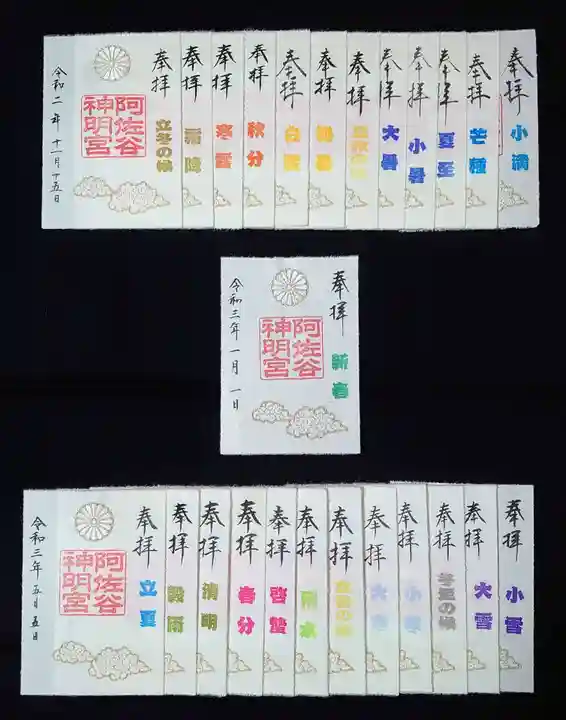 奉拝
小満
奉拝
芒種
奉拝
夏至
奉拝
小暑
奉拝
大暑
奉拝
立秋の候
奉拝
処暑
奉拝
白露
奉拝
秋分
奉拝
寒露
奉拝
霜降
奉拝
立冬の候
阿佐谷
神明宮
令和二年十一月十五日
奉拝
新春
阿佐谷
神明宮
令和三年一月一日
奉拝
小雪
奉拝
大雪
奉拝
冬至の候
奉拝
小寒
奉拝
大寒
奉拝
立春の候
奉拝
雨水
奉拝
啓蟄
奉拝
春分
奉拝
清明
奉拝
穀雨
奉拝
立夏
阿佐谷
神明宮
令和三年五月五日